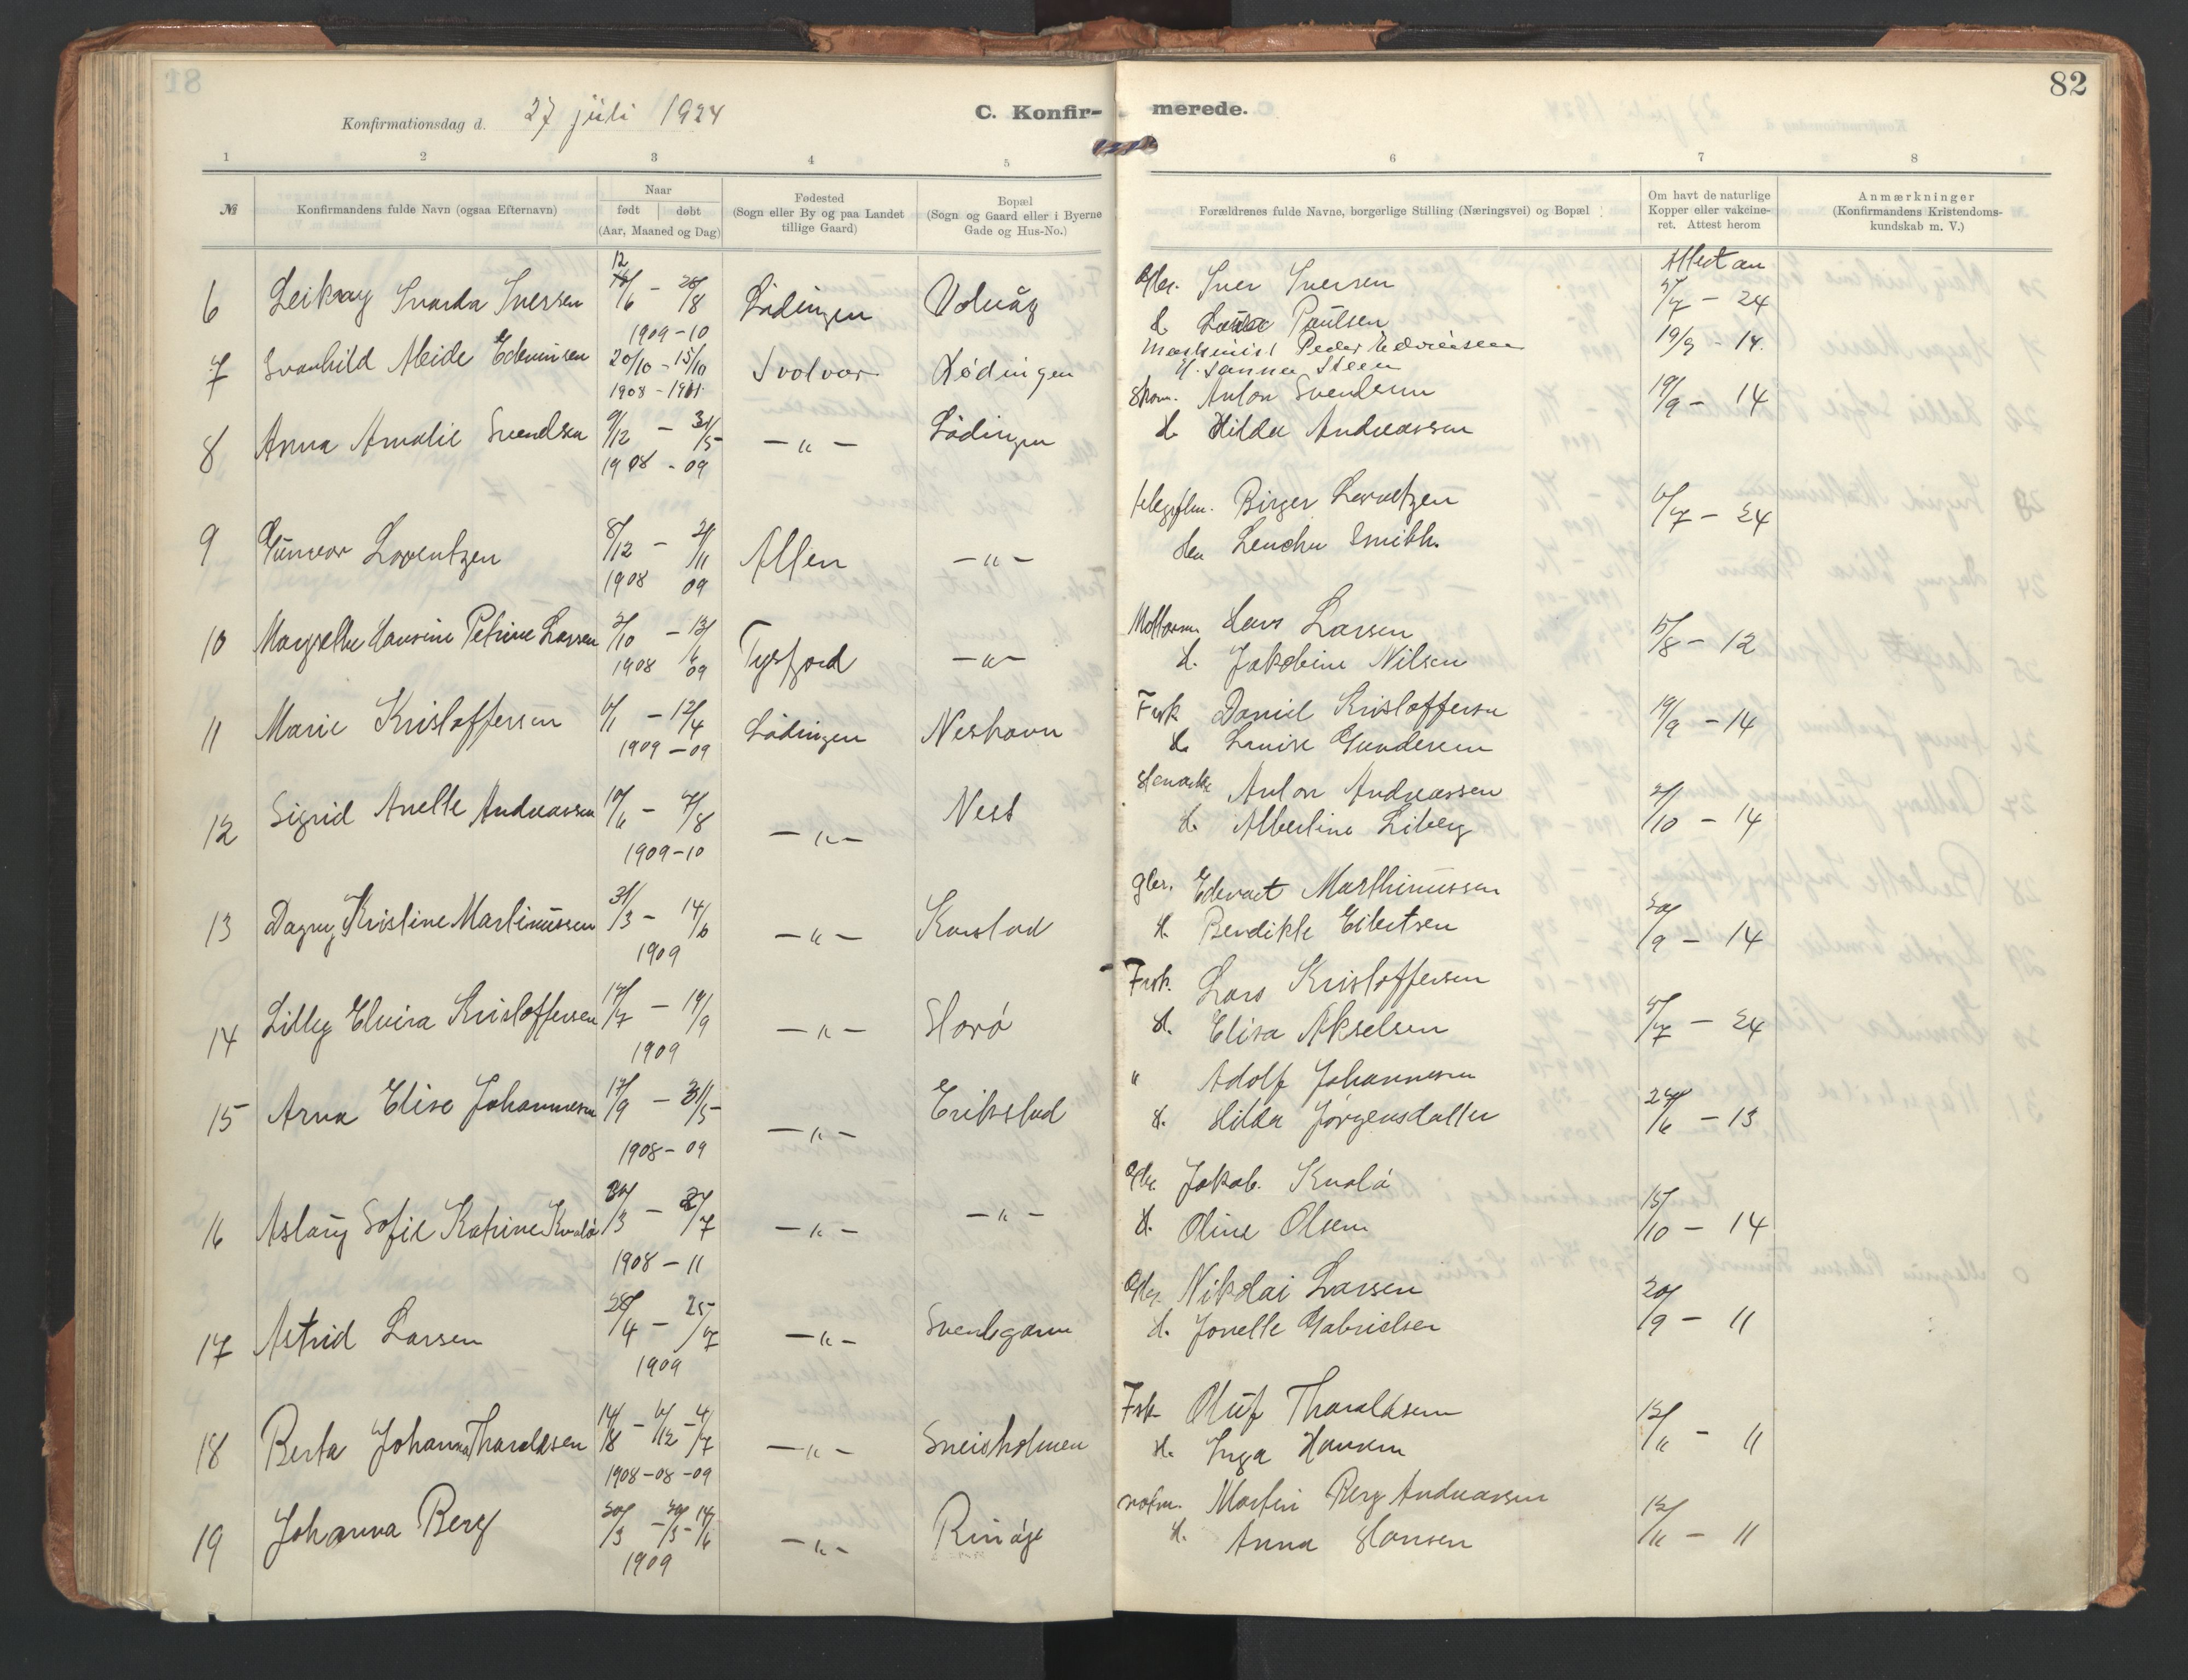 82
Konfirmationsdag d. 27 juli 1924
C. Konfir- merede.
1 2 3 4 5 6 7 8
№
Konfirmandens fulde Navn (ogsaa Efternavn)
Naar
født | døbt
(Aar, Maaned og Dag)
Fødested
(Sogn eller By og paa Landet
tillige Gaard)
Bopæl
(Sogn og Gaard eller i Byerne
Gade og Hus-No.)
Forældrenes fulde Navne, borgerlige Stilling (Næringsvei) og Bopæl
Om havt de naturlige
Kopper eller vakcine-
ret. Attest herom
Anmærkninger
(Konfirmandens Kristendoms-
kundskab m. V.)
Attest av
6 Svarda Iversen 12/6 - 28/8 Lødingen
1909-10
Iver Iversen 5/7 - 24
H. Paulsen
7 Svanhild Edvinsen 20/10 - 15/10 Svolvær Lødingen
1908 - 1911
Maskinist Peder Edvinsen 19/9 - 14.
H. Hanna Steen
8 Anna Amalie Svendsen 9/12 - 31/5 - " - Lødingen
1908 - 09
Anton Svendsen 19/9 - 14
H. Hilda Andreassen
9 Gunvor Lorentzen 8/12 - 21/11 - " -
1908 09
Birger Lorentzen 6/7 - 24
Smith.
10 Hansine Petrine Larsen 2/10 - 13/6 Tysfjord - " -
1908 09
Hans Larsen 15/8 - 12
H. Jakobine Nilsen
11 Marie Kristoffersen 6/1 - 12/4 Lødingen Neshavn
1909 - 09
Fisk Daniel Kristoffersen 19/9 - 14
H. Louise Gundersen
12 Sigrid Anette Andreassen 10/6 - 7/8 - " - Ness
1909-10
Anton Andreassen 2/10 - 14
H. Albertine Liberg
13 Dagny Kristine Martinussen 31/3 - 14/6 - " - Karstad
1909
gbr. Edevart Marthinussen 30/9 - 14
H. Bendikte Eibertsen
14 Lilly Elvira Kristoffersen 17/7 - 19/9 - " -
1909
Fisk. Lars Kristoffersen 5/7 - 24
H. Elisa Akselsen
15 Arna Elise Johannesen 17/9 - 31/5 - " - Erikstad
1908 - 09
" Adolf Johannesen 24/6 - 13
H. Hilda Jørgensdatter
16 Aslaug Sofie Katrine Kvalø 30/3 - 27/7 - " - - " -
1908 - 11
Gbr. Jakob. Kvalø 15/10 - 14
H. Oline Olsen
17 Astrid Larsen 28/4 - 25/7 - " - Svendsgam
1909
Gbr. Nikolai Larsen 20/9 - 11
H. Jonette Gabrielsen
18 Berta Johanna Tharaldsen 14/8 - 6/12 - 4/7 - " - Sneisholmen
1908 - 08 - 09
Fisk Oluf Tharaldsen 12/11 - 11
H. Inga Hansen
19 Johanna Berg 20/3 - 30/5 - 14/6 - " - Rinøy
1909
Martin Berg Andreassen 12/11 - 11
H. Anna Hansen